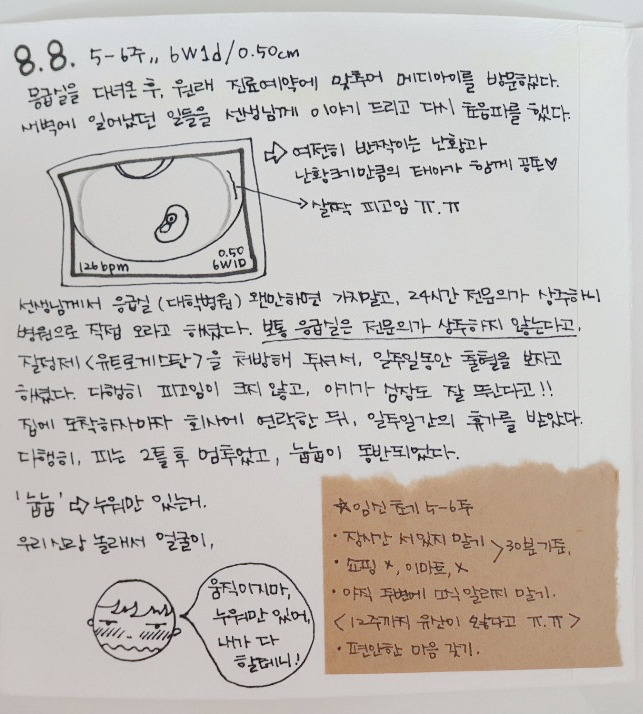 8.8. 5-6주,, 6W1d/0.50cm
응급실을 다녀온 후, 원래 진료예약에 맞추어 메디아이를 방문했다.
새벽에 일어났던 일들을 선생님께 이야기 드리고 다시 초음파를 했다.
⇨ 여전히 반짝이는 난황과
난황크기만큼의 태아가 함께 공존♡
→ 살짝 피고임 ㅠ.ㅠ
126bpm
0.50
6W1D
선생님께서 응급실 (대학병원) 왠만하면 가지말고, 24시간 전문의가 상주하니
병원으로 직접 오라고 하셨다. 보통 응급실은 전문의가 상주하지 않는다고,
질정제 <유트로게스탄>을 처방해 주셔서, 일주일동안 출혈을 보자고
하셨다. 다행히 피고임이 크지 않고, 아기가 심장도 잘 뛴다고!!
집에 도착하자마자 회사에 연락한 뒤, 일주일간의 휴가를 받았다.
다행히, 피는 2틀 후 멈추었고, 눕눕이 동반되었다.
'눕눕' ⇨ 누워만 있는거.
우리신랑 놀래서 얼굴이,
움직이지마,
누워만 있어,
내가 다
할테니!
☆임신 초기 5-6주
• 장시간 서있지 말기
• 쇼핑 x, 이마트, x
> 30분 기준,
• 아직 주변에 소식 알리지 말기.
<12주까지 유산이 많다고 ㅠ.ㅠ>
• 편안한 마음 갖기.